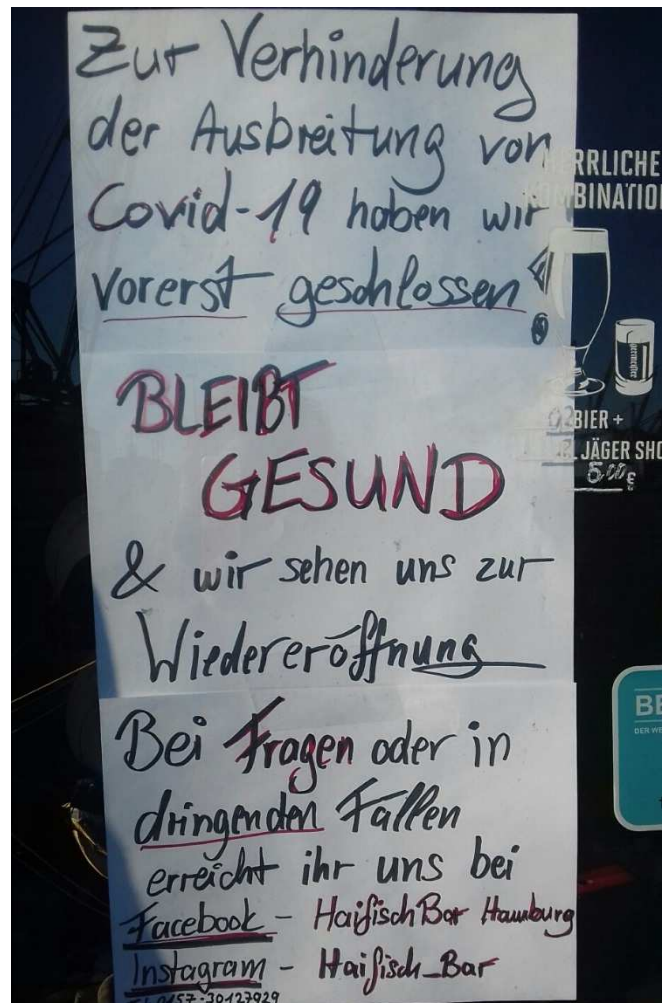 Zur Verhinderung
der Ausbreitung von
Covid-19 haben wir
vorerst geschlossen!
BLEIBT
GESUND
& wir sehen uns zur
Wiedereröffnung
Bei Fragen oder in
dringenden Fällen
erreicht ihr uns bei
Facebook - HaifischBar Hamburg
Instagram - Haifisch_Bar
0157-30127929
RRLICHE
BINATIO
BIER +
JÄGER SHO
5,00€
BE
DER WE